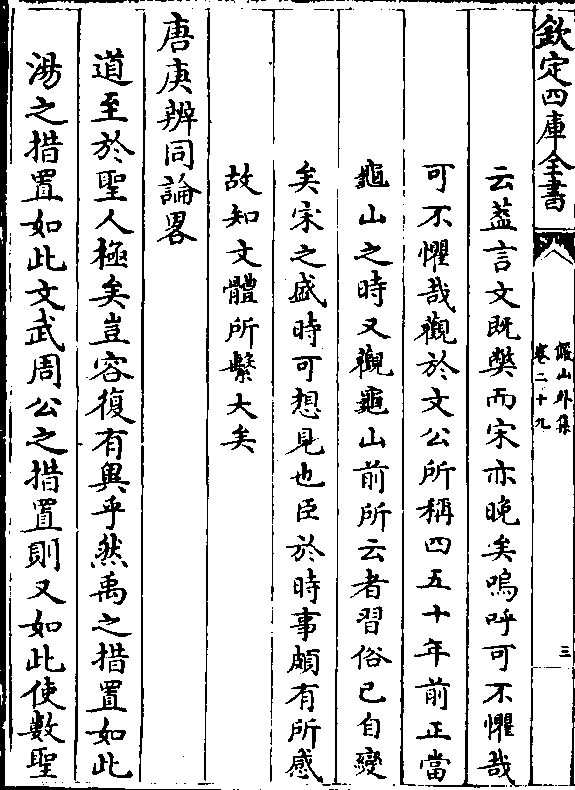 欽定四庫全書
儼山外集
卷二十九
三
云葢言文既獘而宋亦晚矣嗚呼可不懼哉
可不懼哉觀於文公所稱四五十年前正當
龜山之時又觀龜山前所云者習俗已自變
矣宋之盛時可想見也臣於時事頗有所感
故知文體所繫大矣
唐庚辨同論畧
道至於聖人極矣豈容復有異乎然禹之措置如此
湯之措置如此文武周公之措置則又如此使數聖